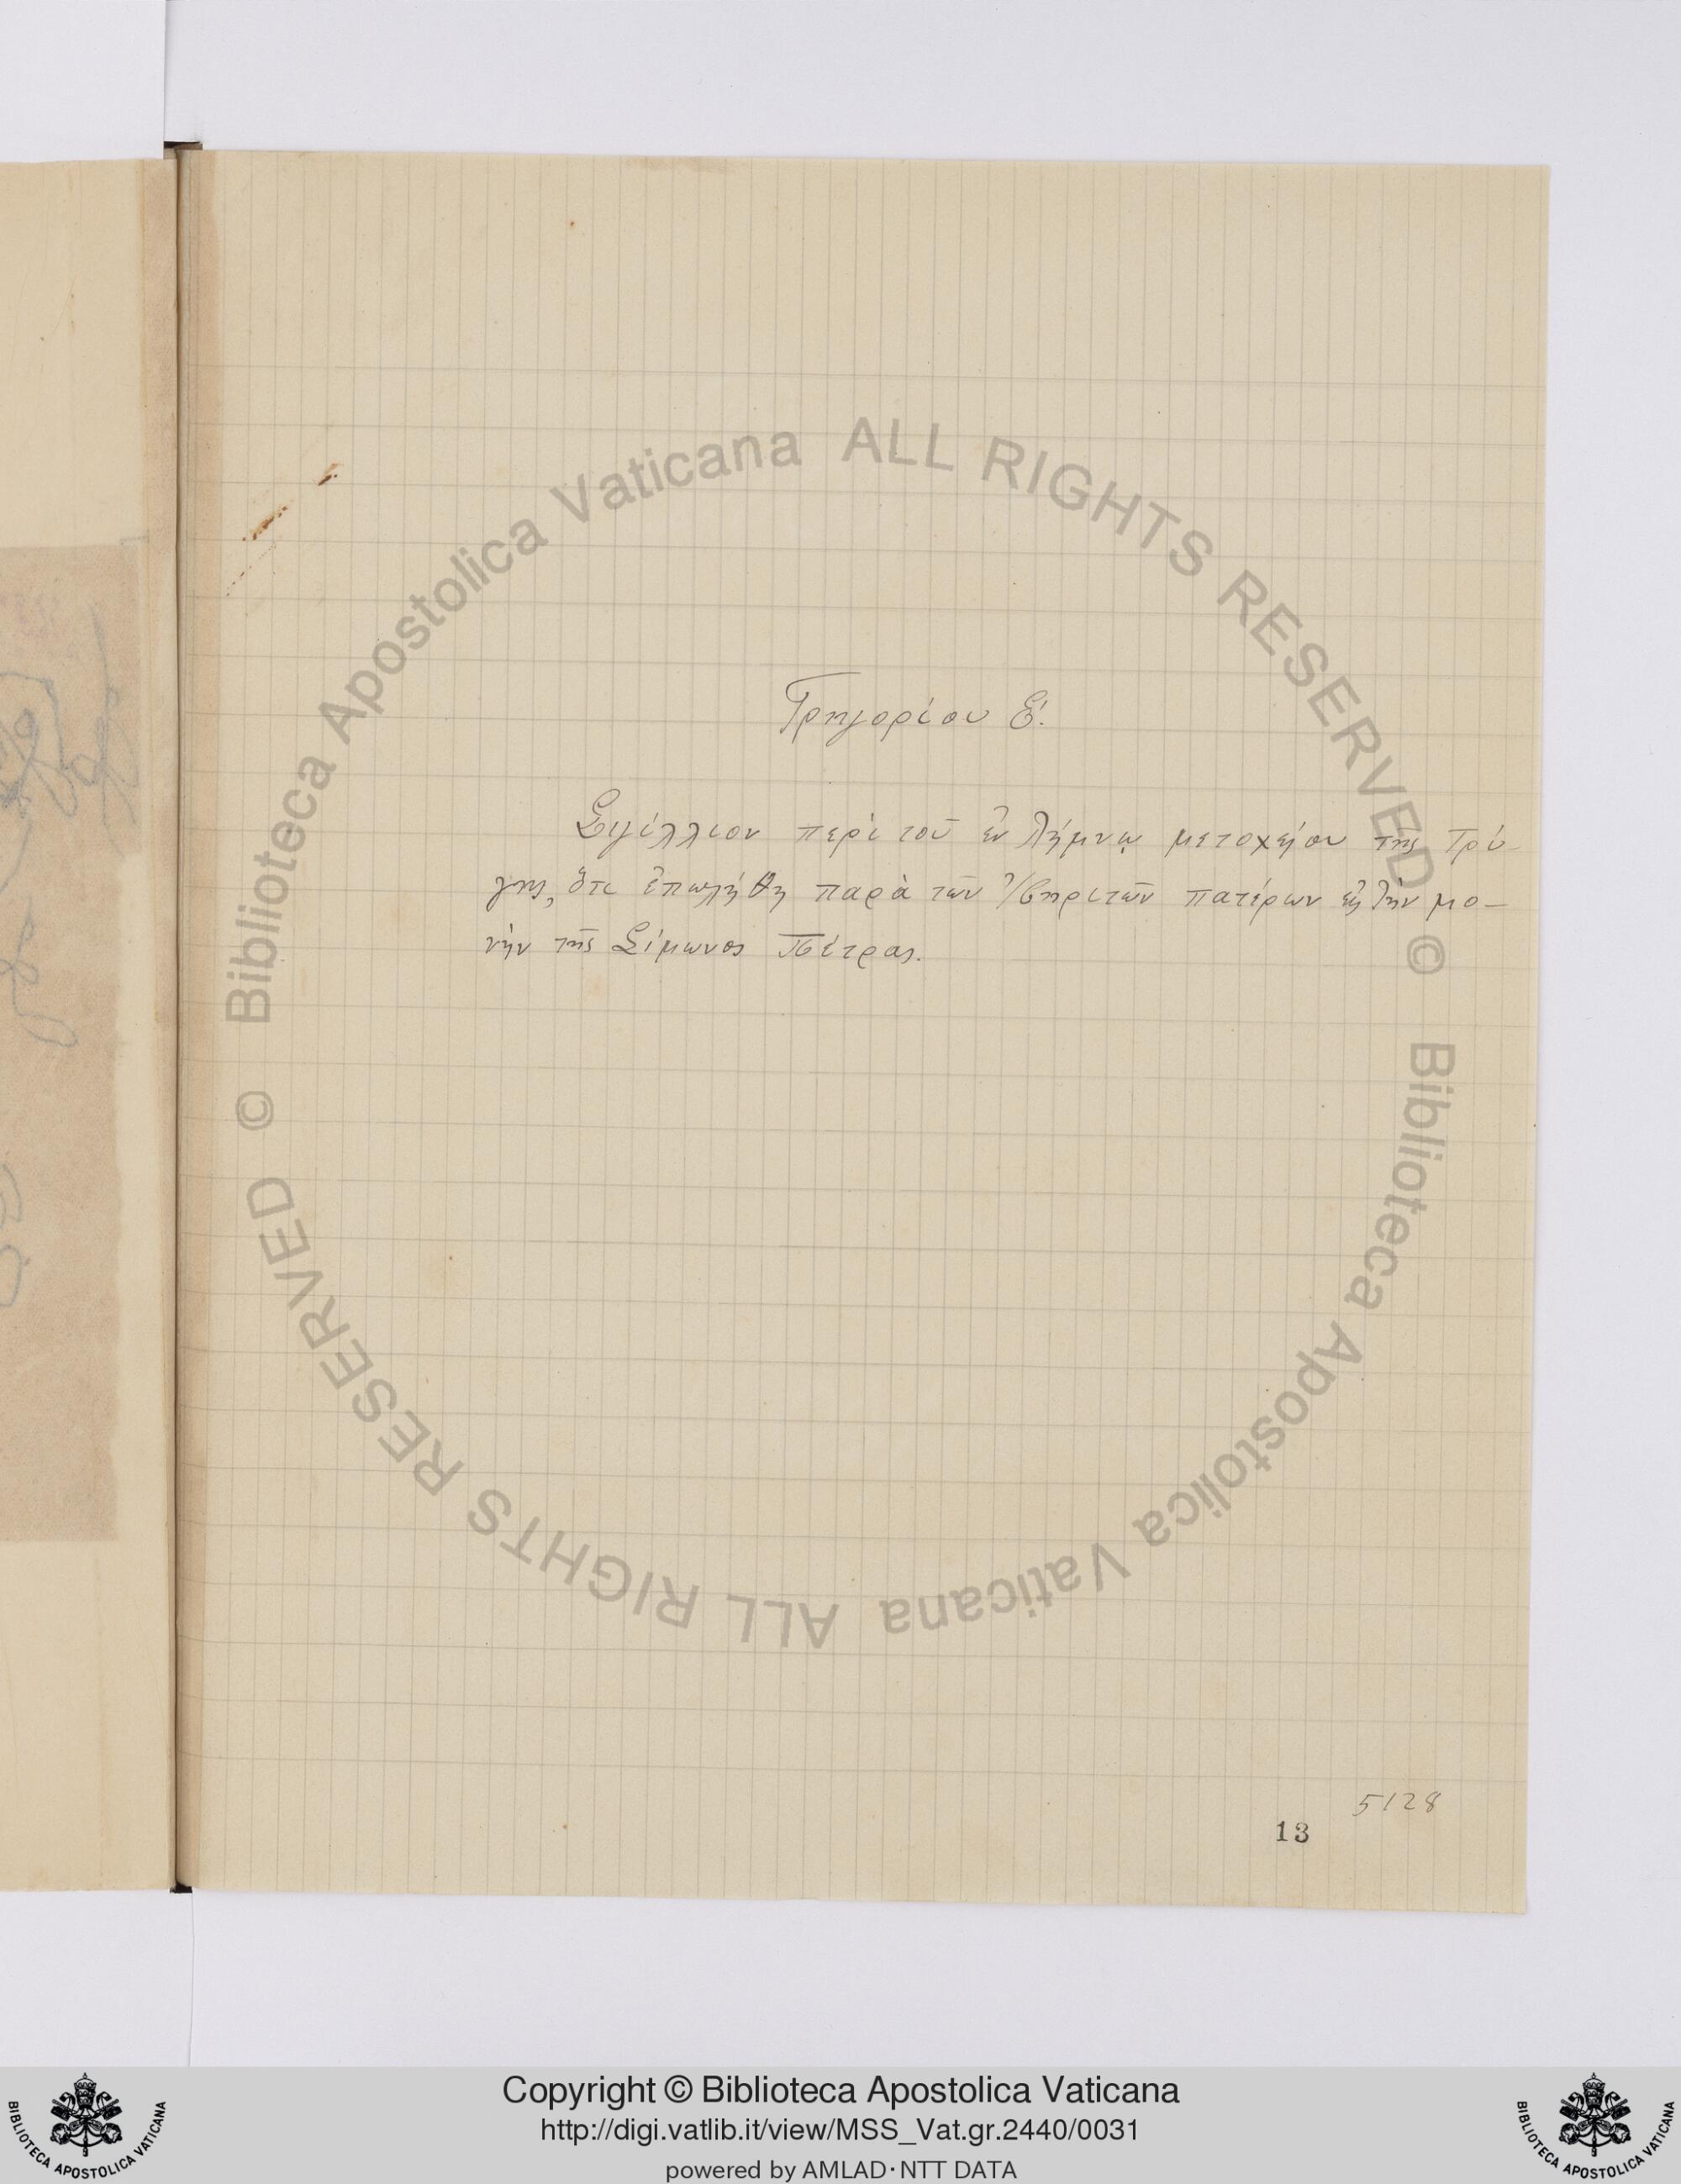 Γρηγορίου Ε΄.
Σιγίλλιον περὶ τοῦ ἐν Λήμνῳ μετοχείου τῆς Τρύ-
γης, ὅτι ἐπωλήθη παρὰ τῶν Ἰβηριτῶν πατέρων εἰς τὴν μο-
νὴν τῆς Σίμωνος Πέτρας.
5128
13
© Biblioteca Apostolica Vaticana ALL RIGHTS RESERVED
© Biblioteca Apostolica Vaticana ALL RIGHTS RESERVED
Copyright © Biblioteca Apostolica Vaticana
http://digi.vatlib.it/view/MSS_Vat.gr.2440/0031
powered by AMLAD·NTT DATA
BIBLIOTECA APOSTOLICA VATICANA
BIBLIOTECA APOSTOLICA VATICANA